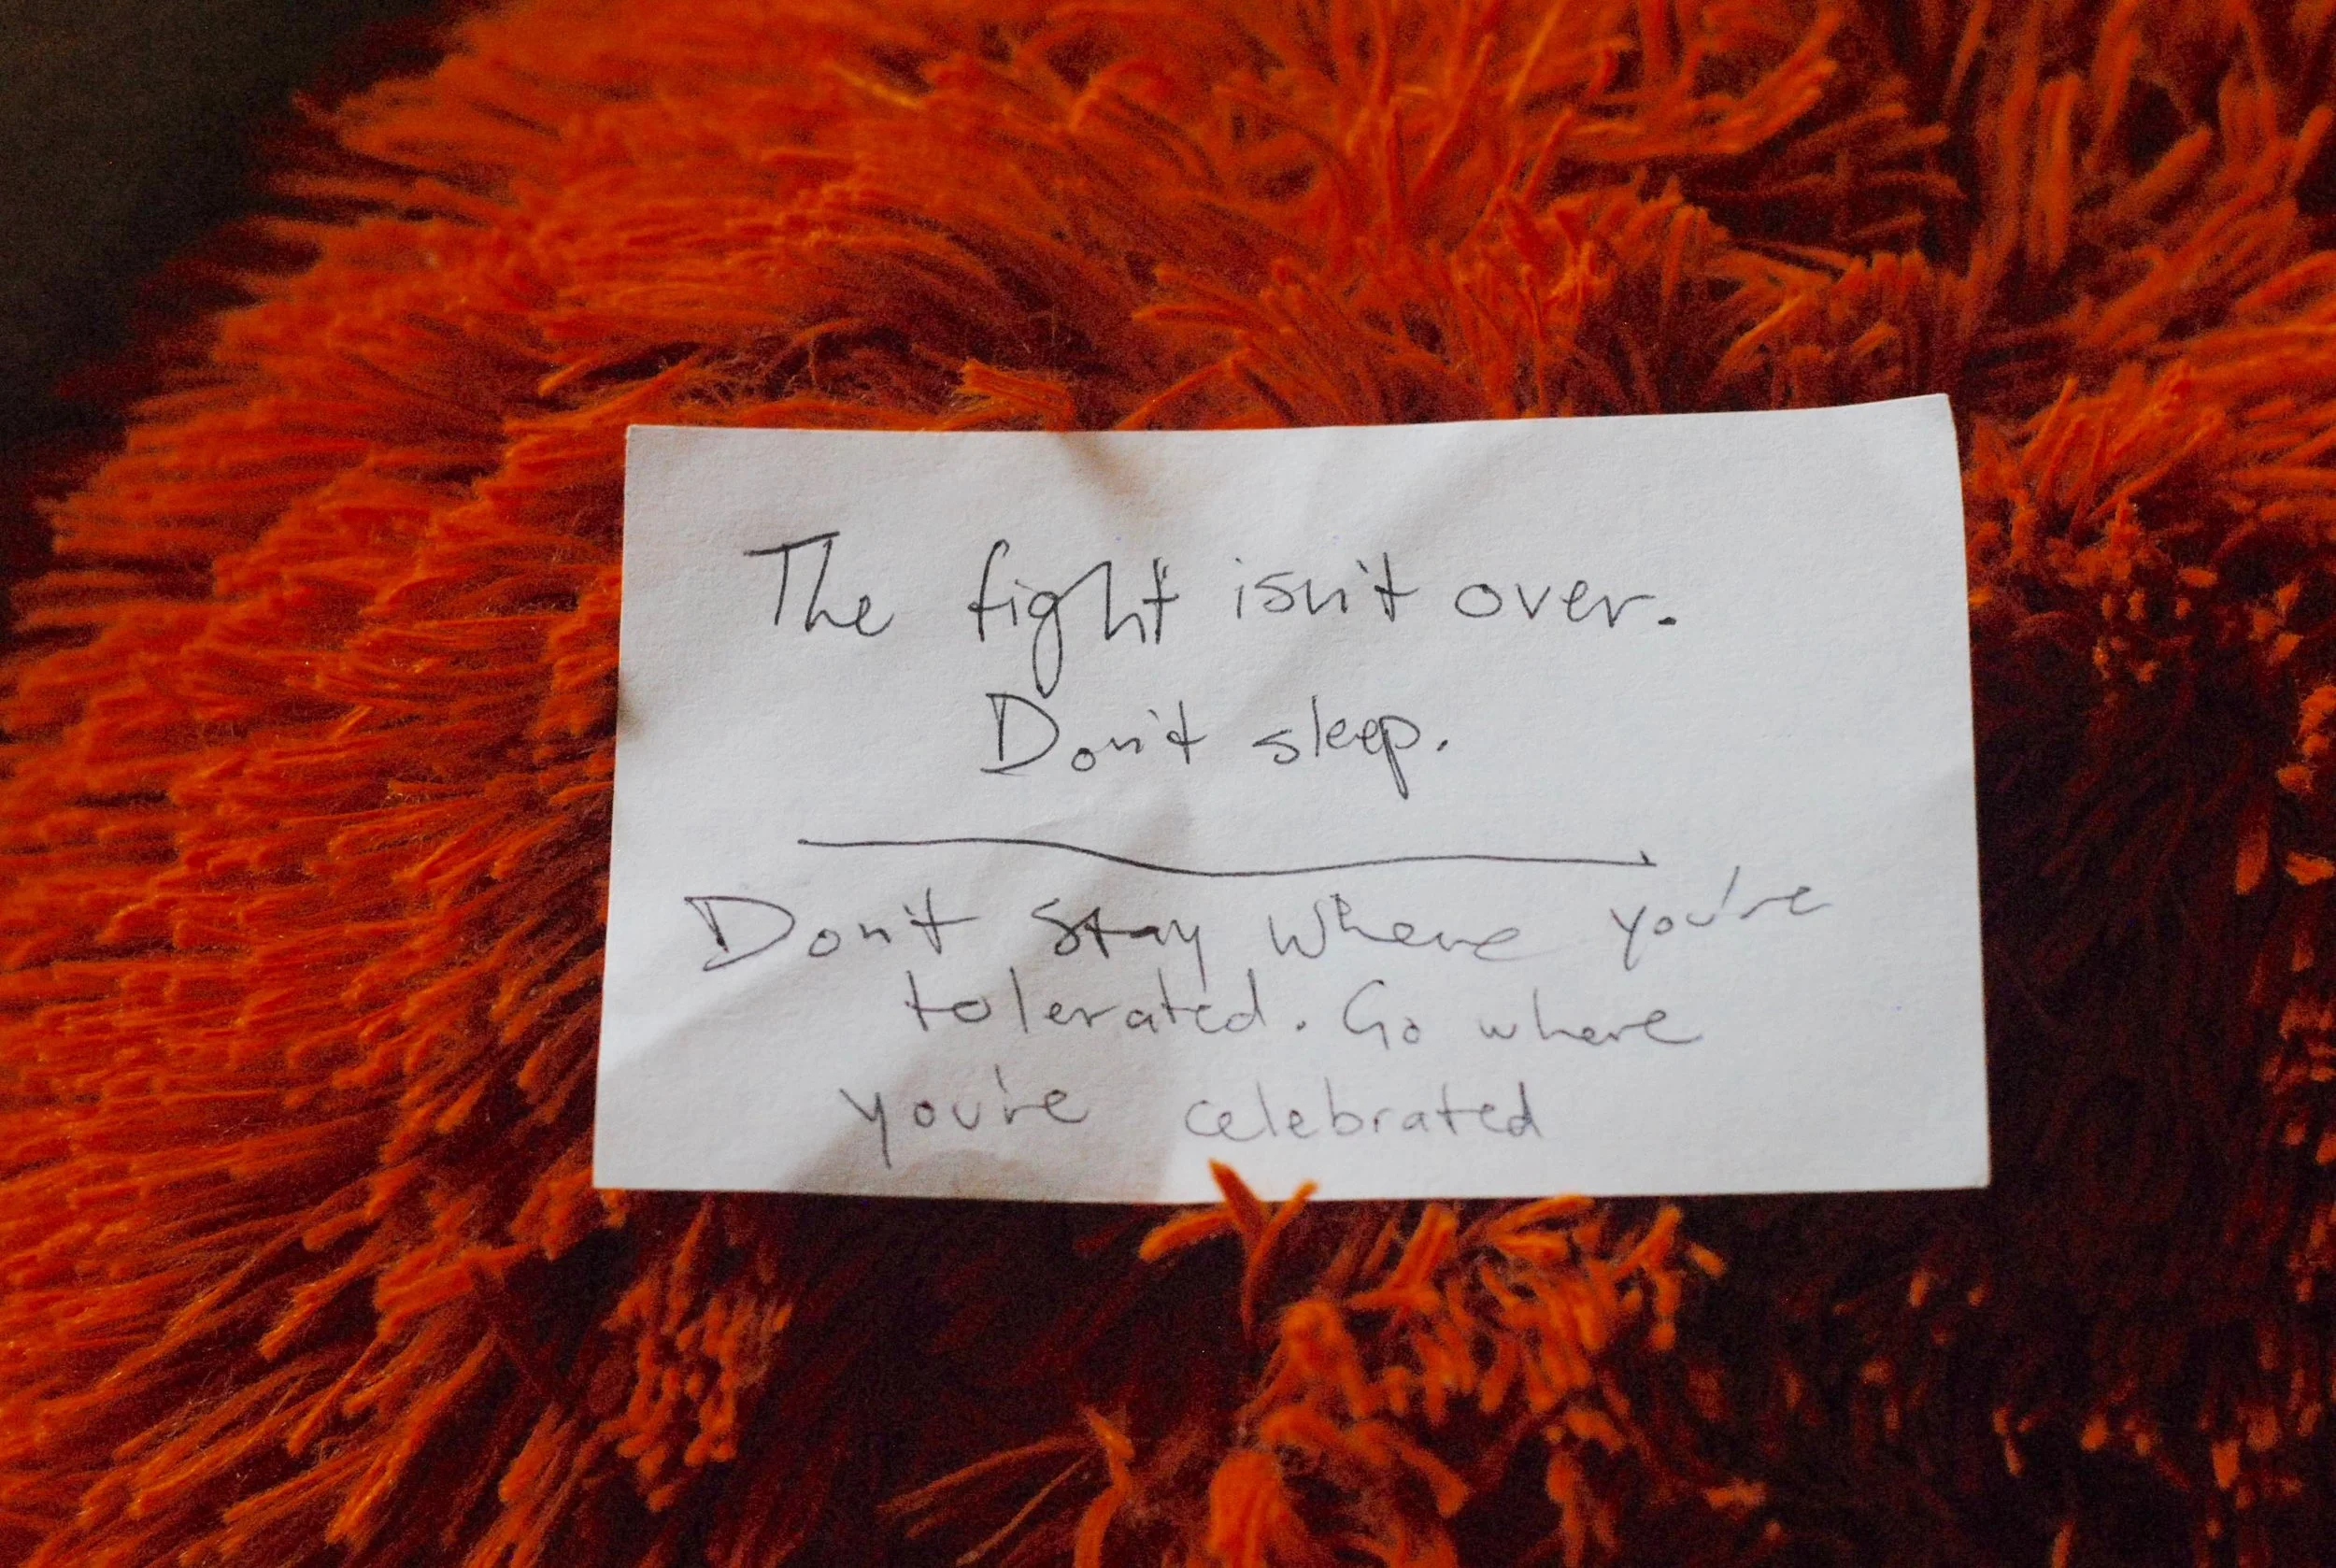 The fight isn't over.
Don't sleep.
Don't stay where you're
tolerated. Go where
you're celebrated